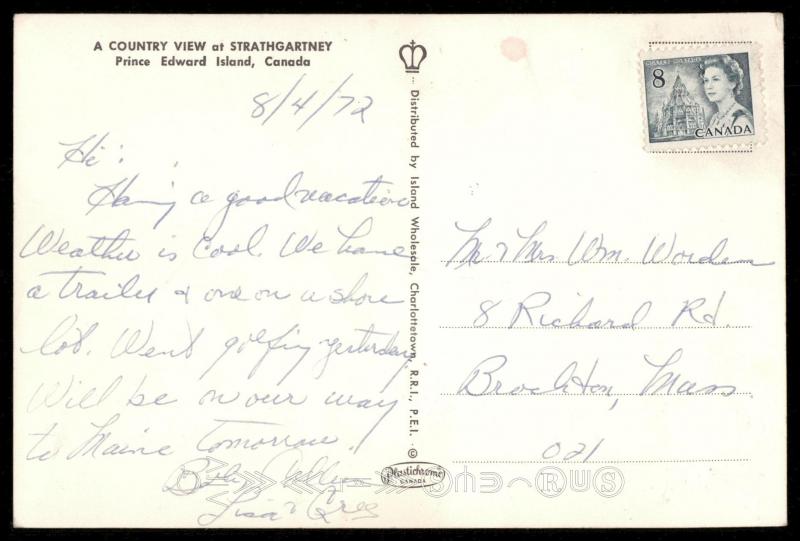 A COUNTRY VIEW at STRATHGARTNEY
Prince Edward Island, Canada
8/4/72
Hi:
Having a good vacation
Weather is cool. We have
a trailer & are on a shore
lot. Went golfing yesterday
Will be on our way
to Maine tomorrow.
Lisa & Greg
Distributed by Island Wholesale, Charlottetown, R.R.1., P.E.I. ©
Plastichrome
CANADA
8
CANADA
Mr & Mrs Wm. Worden
8 Richard Rd.
Brockton, Mass.
021